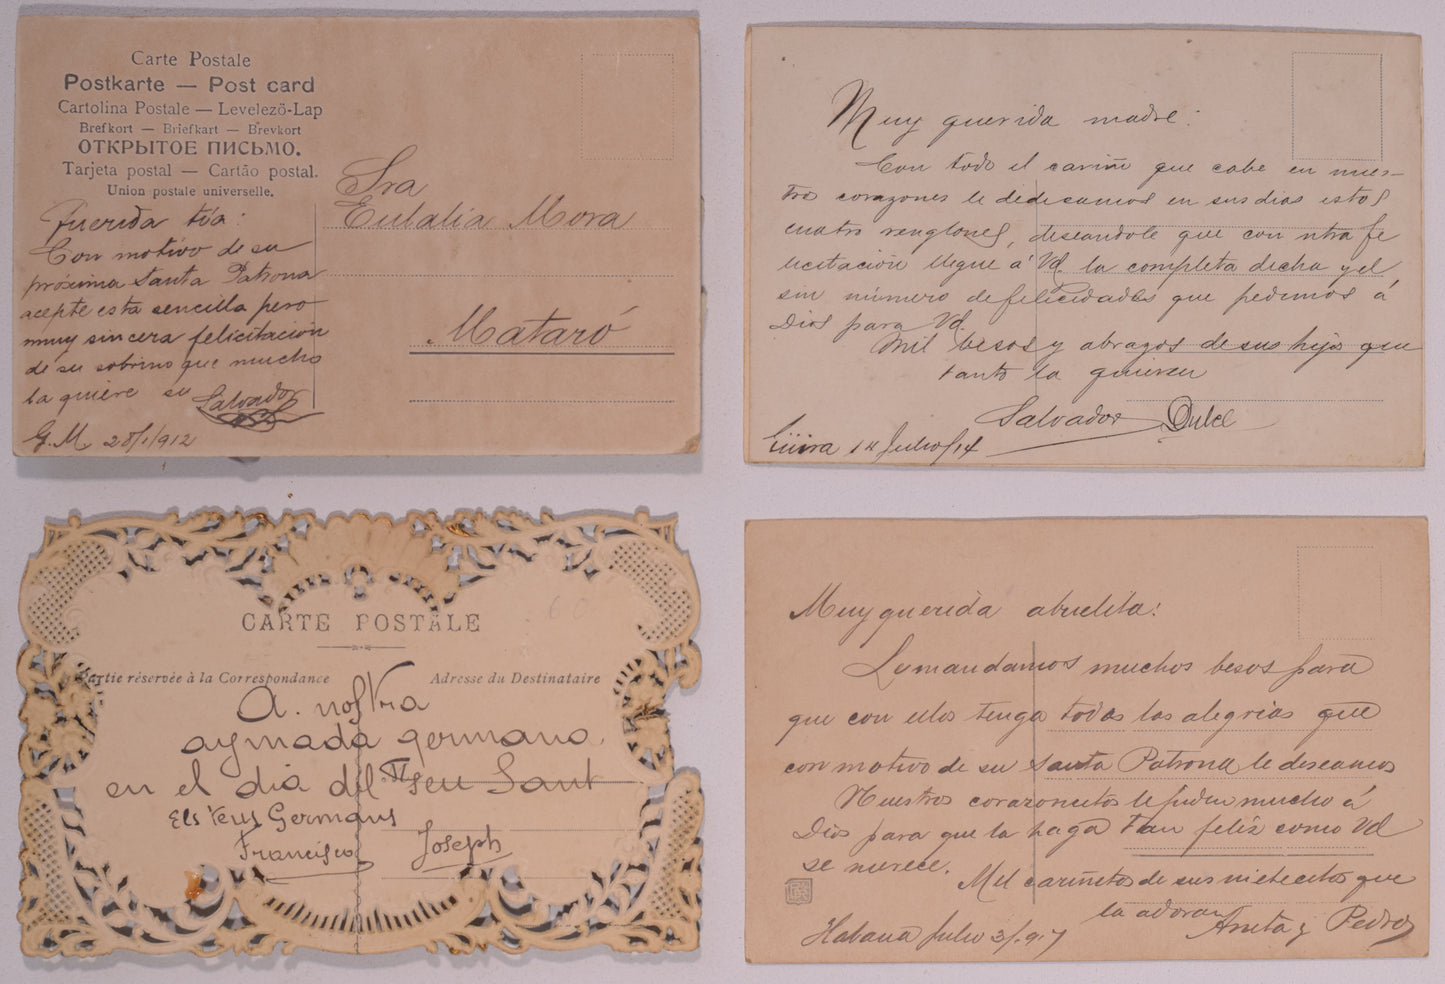 Carte Postale
Postkarte — Post card
Cartolina Postale — Levelezö-Lap
Brefkort — Briefkart — Brevkort
ОТКРЫТОЕ ПИСЬМО.
Tarjeta postal — Cartão postal.
Union postale universelle.
Querida tía:
Con motivo de su
próxima Santa Patrona
acepte esta sencilla pero
muy sincera felicitación
de su sobrino que mucho
la quiere su Salvador
G. M. 28/1/912
Sra
Eulalia Mora
Mataró
Muy querida madre:
Con todo el cariño que cabe en nues-
tros corazones le dedicamos en sus dias estos
cuatro renglones, deseandole que con ntra fe
licitación llegue á Vd. la completa dicha y el
sin número de felicidades que pedimos á
Dios para Vd.
Mil besos y abrazos de sus hijos que
tanto la quieren
Salvador Dulce
Güira 14 Julio/14
CARTE POSTALE
60
Partie réservée à la Correspondance
Adresse du Destinataire
A. nostra
aymada germana
en el dia del seu Sant
Els teus Germans
Francisco Joseph
Muy querida abuelita:
Le mandamos muchos besos para
que con ellos tenga todas las alegrias que
con motivo de su Santa Patrona le deseamos
Nuestros corazoncitos le piden mucho á
Dios para que la haga tan feliz como Vd
se merece.
Mil cariñitos de sus nietecitos que
la adoran
Anita y Pedro
Habana Julio 3/917